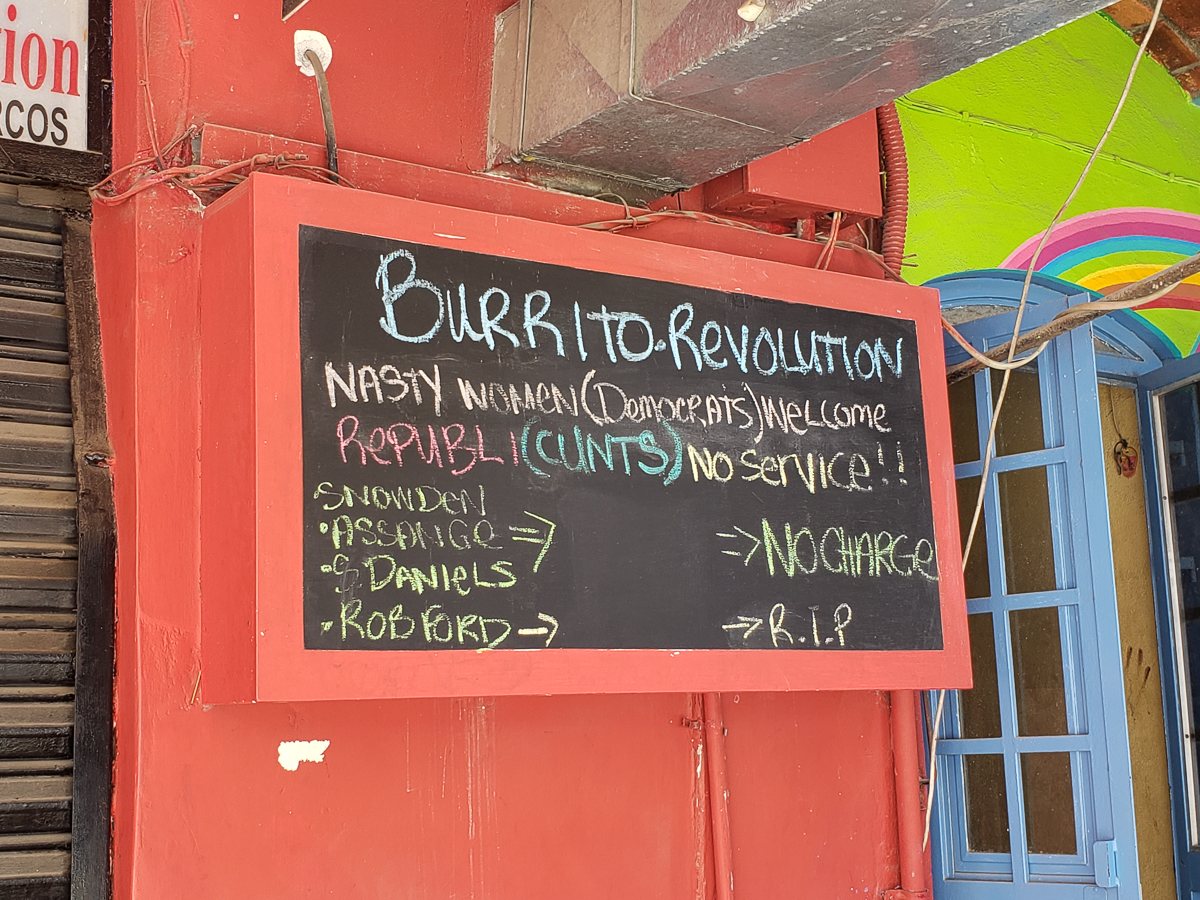 ion
RCOS
BURRITO.REVOLUTION
NASTY WOMEN (DEMOCRATS) WELCOME
REPUBLI(CUNTS) NO SERVICE!!
SNOWDEN
·ASSANGE ⇒ ⇒ NO CHARGE
·S DANIELS
·ROB FORD → → R.I.P